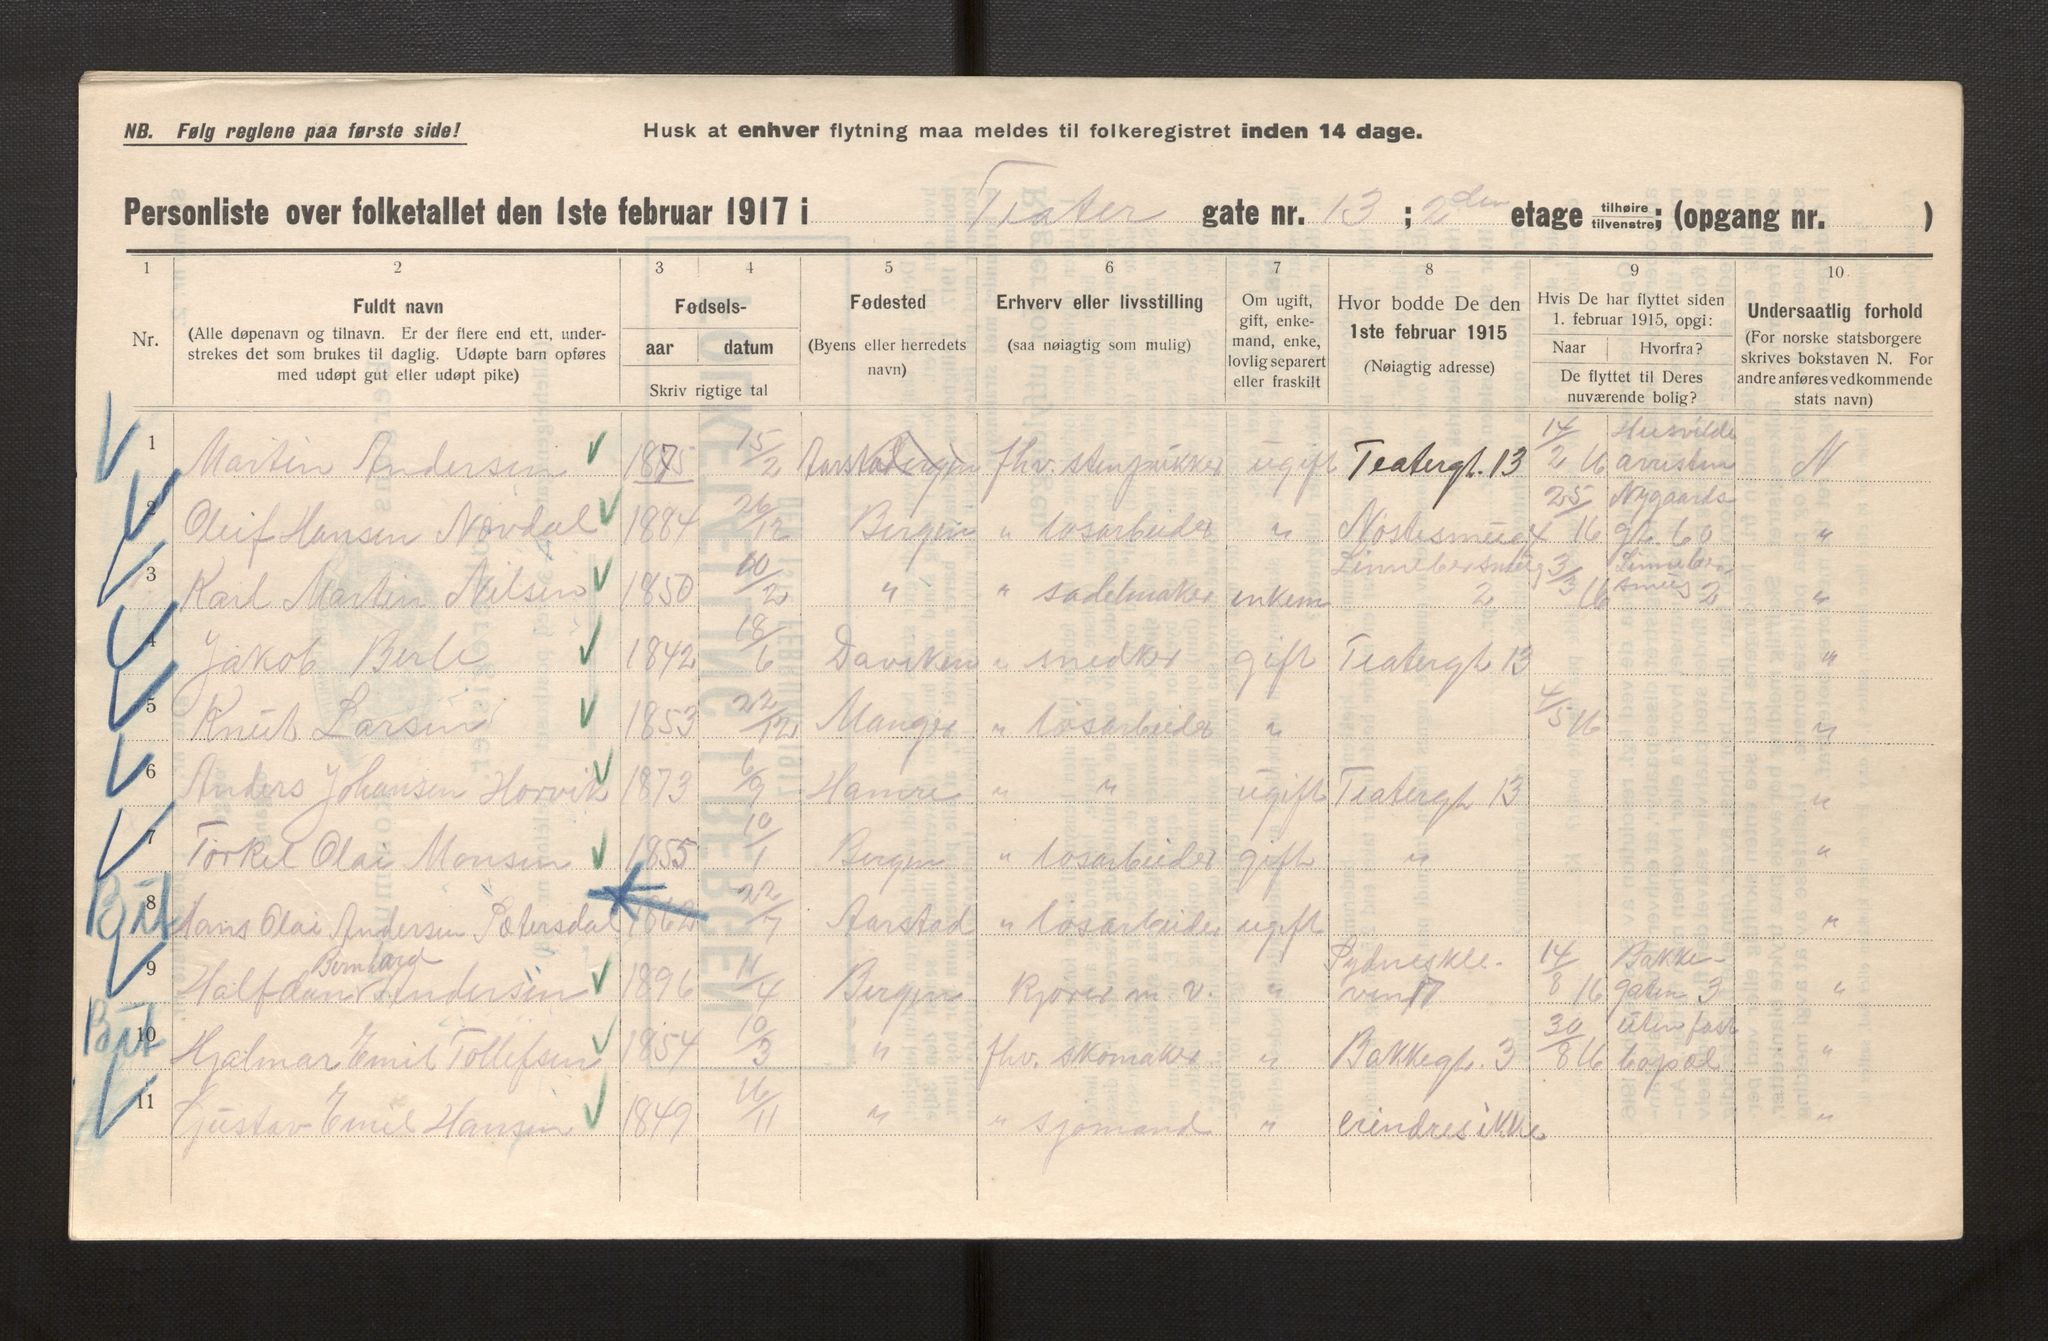 NB. Følg reglene paa første side!
Husk at enhver flytning maa meldes til folkeregistret inden 14 dage.
Personliste over folketallet den 1ste februar 1917 i Teater gate nr. 13 ; 2den etage tilhøire tilvenstre; (opgang nr. )
1 2 3 4 5 6 7 8 9 10
Nr.
Fuldt navn
(Alle døpenavn og tilnavn. Er der flere end ett, under-
strekes det som brukes til daglig. Udøpte barn opføres
med udøpt gut eller udøpt pike)
Fødsels-
aar datum
Skriv rigtige tal
Fødested
(Byens eller herredets
navn)
Erhverv eller livsstilling
(saa nøiagtig som mulig)
Om ugift,
gift, enke-
mand, enke,
lovlig separert
eller fraskilt
Hvor bodde De den
1ste februar 1915
(Nøiagtig adresse)
Hvis De har flyttet siden
1. februar 1915, opgi:
Naar Hvorfra?
De flyttet til Deres
nuværende bolig?
Undersaatlig forhold
(For norske statsborgere
skrives bokstaven N. For
andre anføres vedkommende
stats navn)
1 Martin Andersen 1875 15/2 Aarstad Bergen fhv. stenpikker ugift Teatergt. 13 14/2 16 N
2 Oleif Hansen Novdal 1884 26/12 Bergen " losarbeider " Nøstesmug 4 25/ 16 Nygaards gt. 60 "
3 Karl Martin Nilsen 1850 10/2 " " sadelmaker enkem Linnebersmug 2 3/3 16 Linnebersmug 2 "
4 Jakob Berle 1842 18/6 Daviken " snedker gift Teatergt 13 "
5 Knut Larsen 1853 22/12 Manger " losarbeider " 4/5 16 "
6 Anders Johansen Horvik 1873 6/9 Hamre " " ugift Teatergt 13 "
7 Torkel Olai Monsen 1855 10/1 Bergen " losarbeider gift " "
8 Hans Olai Andersen Sætersdal 1862 22/7 Aarstad " losarbeider ugift "
Byt
9 Halfdan Bernhard Andersen 1896 11/4 Bergen kjører m. v. " Sydneskleven 17 14/8 16 Bakkegaten 3 "
10 Hjalmar Emil Tollefsen 1854 10/3 " fhv. skomaker " Bakkegt. 3 30/8 16 uten fast bopæl "
Byt
11 Gustav Emil Hansen 1849 16/11 " " sjømand " erindres ikke "